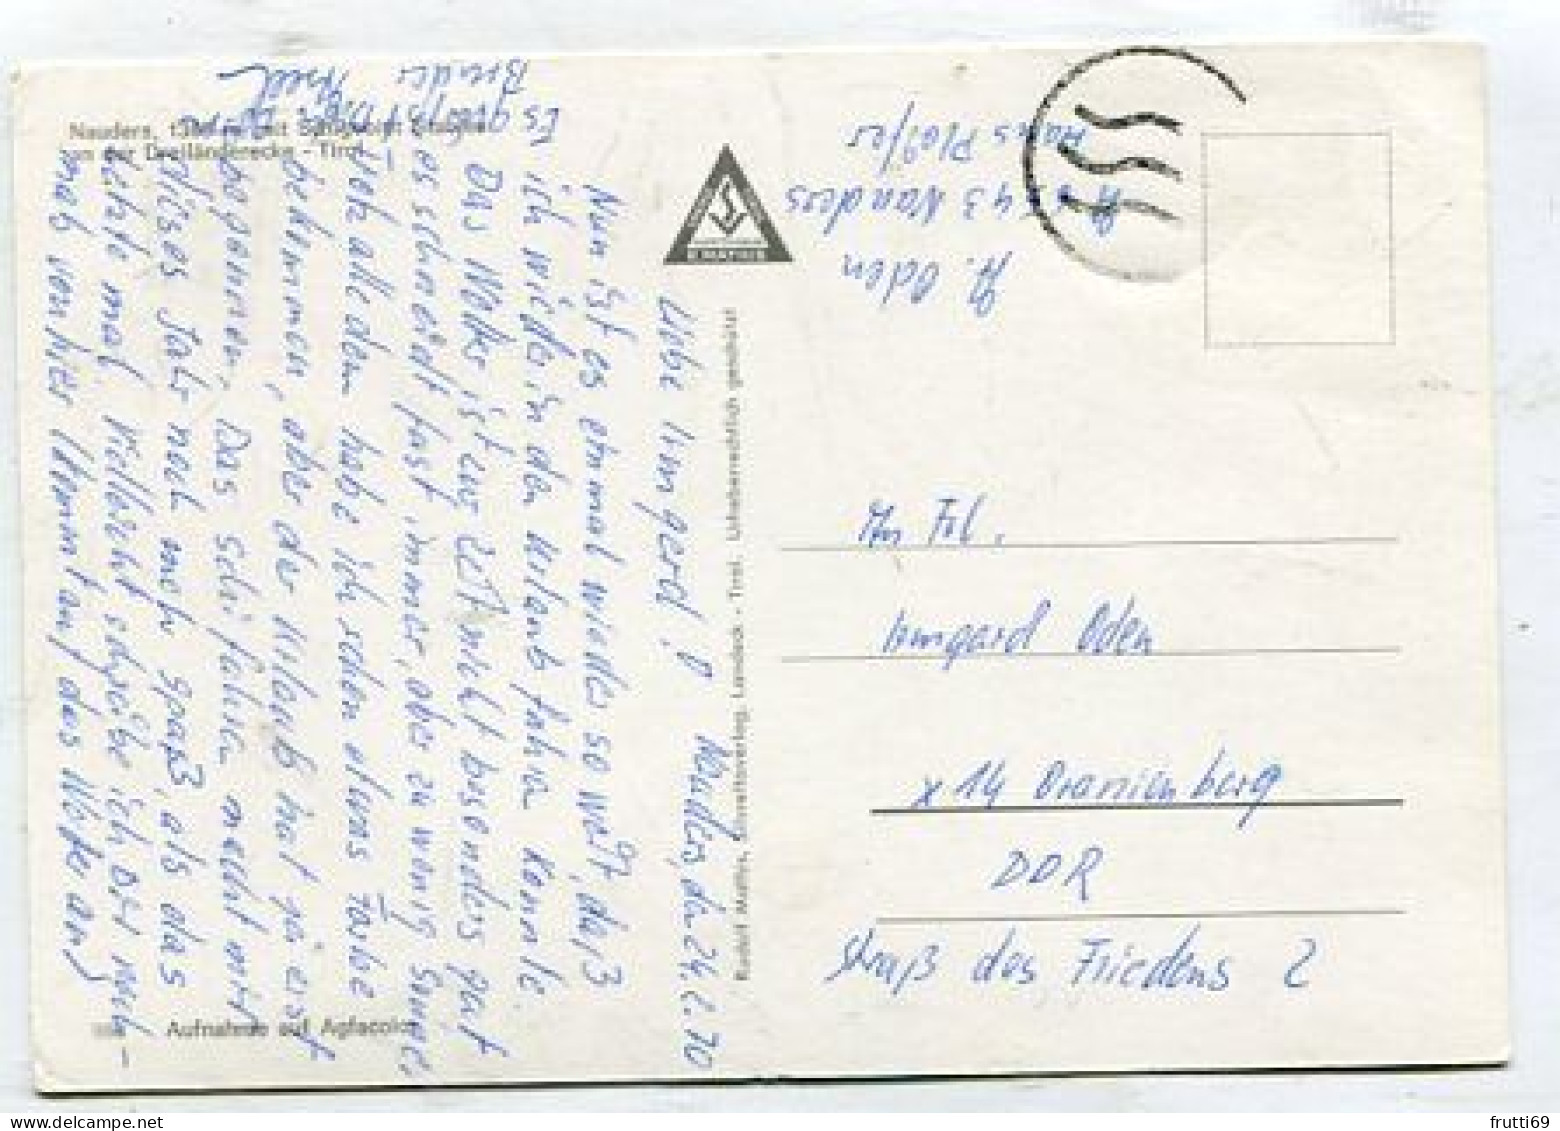 Liebe Irmgard! Nauders, den 24.2.70
Nun ist es einmal wieder so weit, daß
ich wieder in den Urlaub fahren konnte.
Das Wetter ist zur Zeit nicht besonders gut
es schneit fast immer, oder zu wenig Sonne.
Trotz alledem habe ich schon etwas Farbe
bekommen, aber der Urlaub hat ja erst
begonnen. Das Schifahren macht mir
dieses Jahr noch mehr Spaß, als das
letzte mal. Vielleicht schreibe ich Dir noch-
mals von hier, kommt auf das Wetter an.
Es grüßt Dich Dein
Bruder Axel
Nauders,
an der Dreiländerecke - Tirol
Aufnahme auf Agfacolor
R. MATHIS
Rudolf Mathis, Lichtbildverlag, Landeck - Tirol. Urheberrechtlich geschützt
A. Oden
A 6543 Nauders
Haus Plangger
An Frl.
Irmgard Oden
x 14 Oranienberg
DDR
Straß des Friedens 2
frutti69